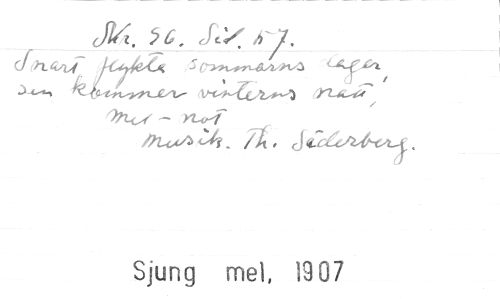 Skr. 96. Sid. 57.
Snart flykta sommarns dagar,
sen kommer vinterns natt,
mel - not
musik. Th. Söderberg.
Sjung mel, 1907